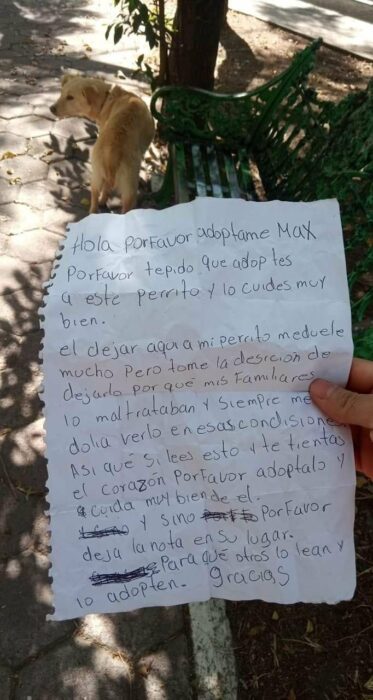 Hola PorFavor adoptame Max
PorFavor tepido que adoptes
a este perrito y lo cuides muy
bien.
el dejar aqui a mi perrito meduele
mucho Pero tome la desicion de
dejarlo por que mis Familiares
lo maltrataban y siempre me
dolia verlo en esas condisiones
Asi que si lees esto y te tientas
el corazón PorFavor adoptalo y
cuida muy bien de el.
y sino PorFavor
deja la nota en su lugar.
Para que otros lo lean y
lo adopten. gracias